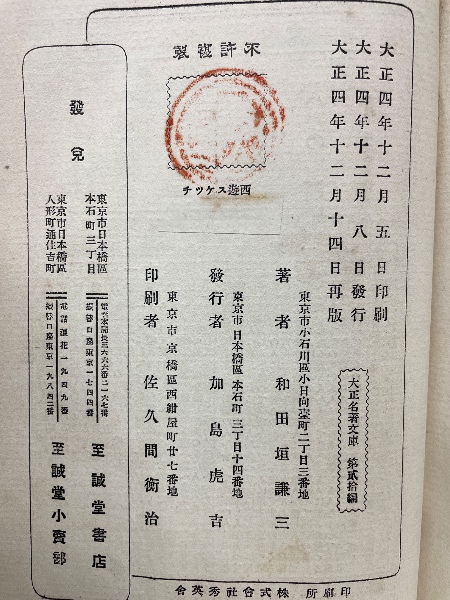 大正四年十二月五日印刷
大正四年十二月八日發行
大正四年十二月十四日再版
不許複製
西遊スケツチ
大正名著文庫 第貳拾編
東京市小石川區小日向臺町二丁目三番地
著者 和田垣謙三
東京市日本橋區本石町三丁目十四番地
發行者 加島虎吉
東京市京橋區西紺屋町廿七番地
印刷者 佐久間衡治
發兌
東京市日本橋區
本石町三丁目
至誠堂書店
東京市日本橋區
人形町通住吉町
電話浪花一九四九番
振替口座東京一九八四三番
至誠堂小賣部
印刷所 株式會社秀英舍